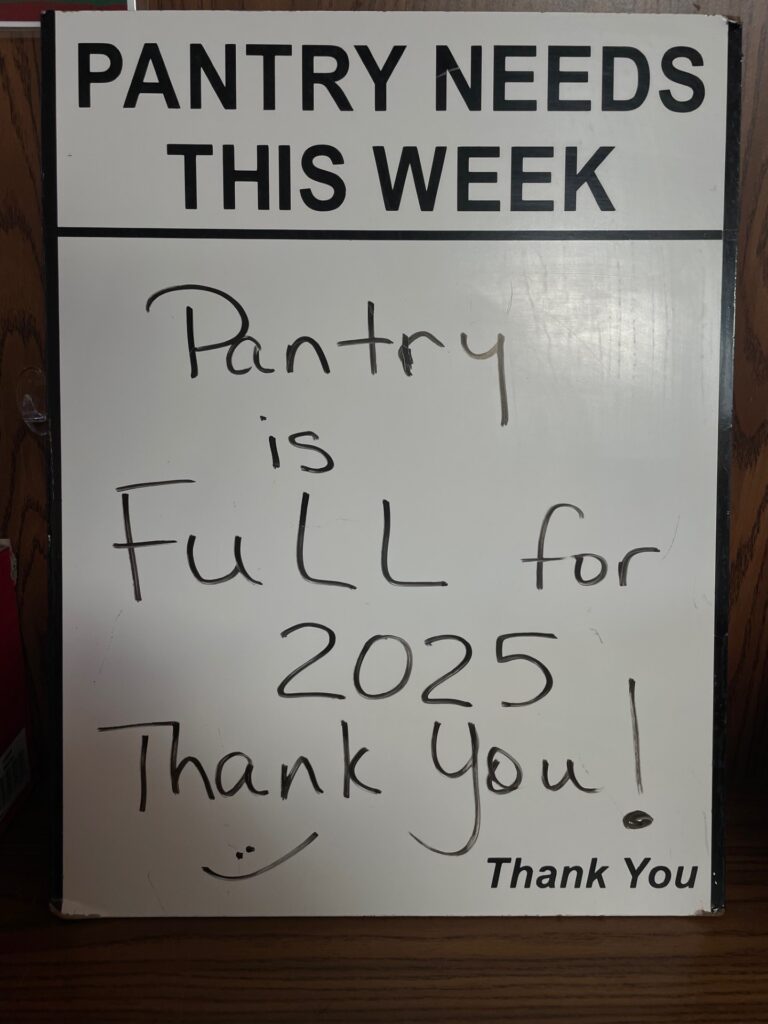 PANTRY NEEDS
THIS WEEK
Pantry
is
FuLL for
2025
Thank You!
Thank You